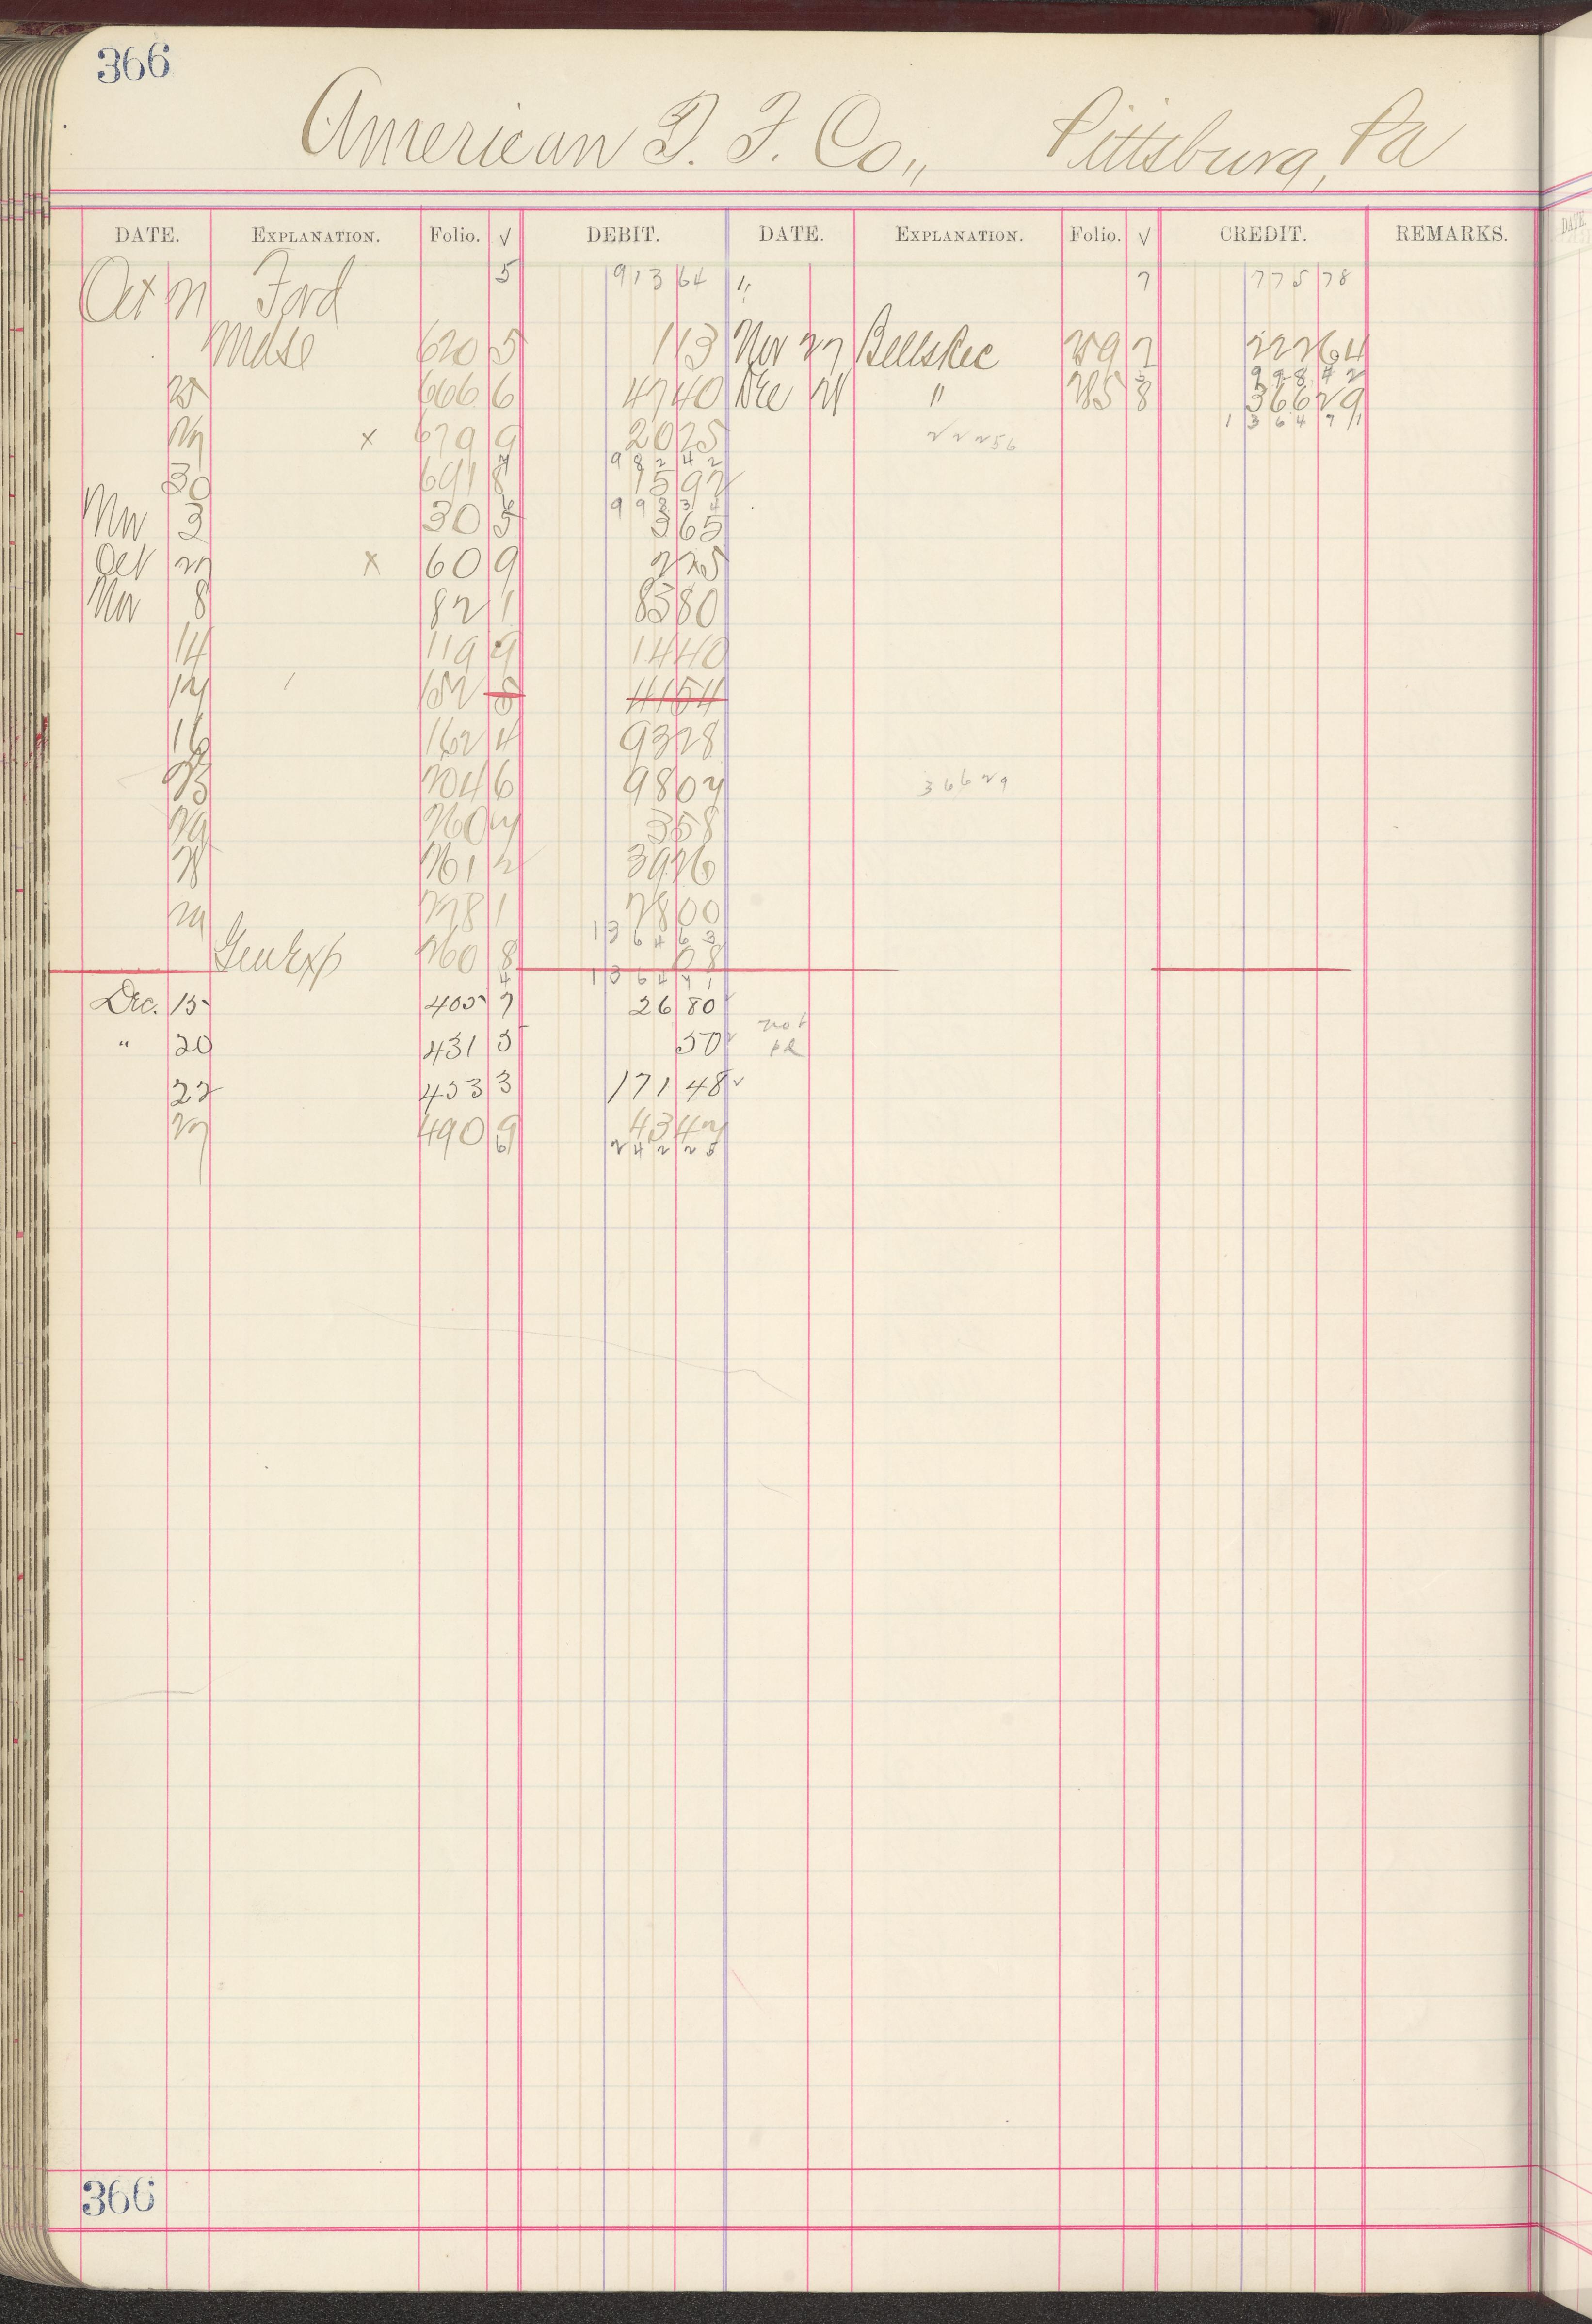 366
American I. F. Co., Pittsburg, Pa
DATE. EXPLANATION. Folio. √ DEBIT. DATE. EXPLANATION. Folio. √ CREDIT. REMARKS.
Ford 5 913 64 " 7 775 78
Mdse 620 5 1 13 Nov 27 Bellskee 289 2 222 64
998 42
25 666 6 47 40 Dec 21 " 285 8 366 29
1364 71
27 x 679 9 20 25 22256
982 42
30 691 8 15 92
998 34
Nov 3 30 5 3 65
Oct 27 x 60 9 2 25
Nov 8 82 1 85 80
14 119 9 14 40
152 8 41 54
16 162 4 93 28
204 6 98 07 36629
29 260 3 58
261 2 39 26
278 1 78 00
1364 63
Gen Exp 260 8 08
1364 71
Dec. 15 405 7 26 80
not
" 20 431 3 50 pd
22 453 3 171 48 √
27 490 9 43 47
242 25
366